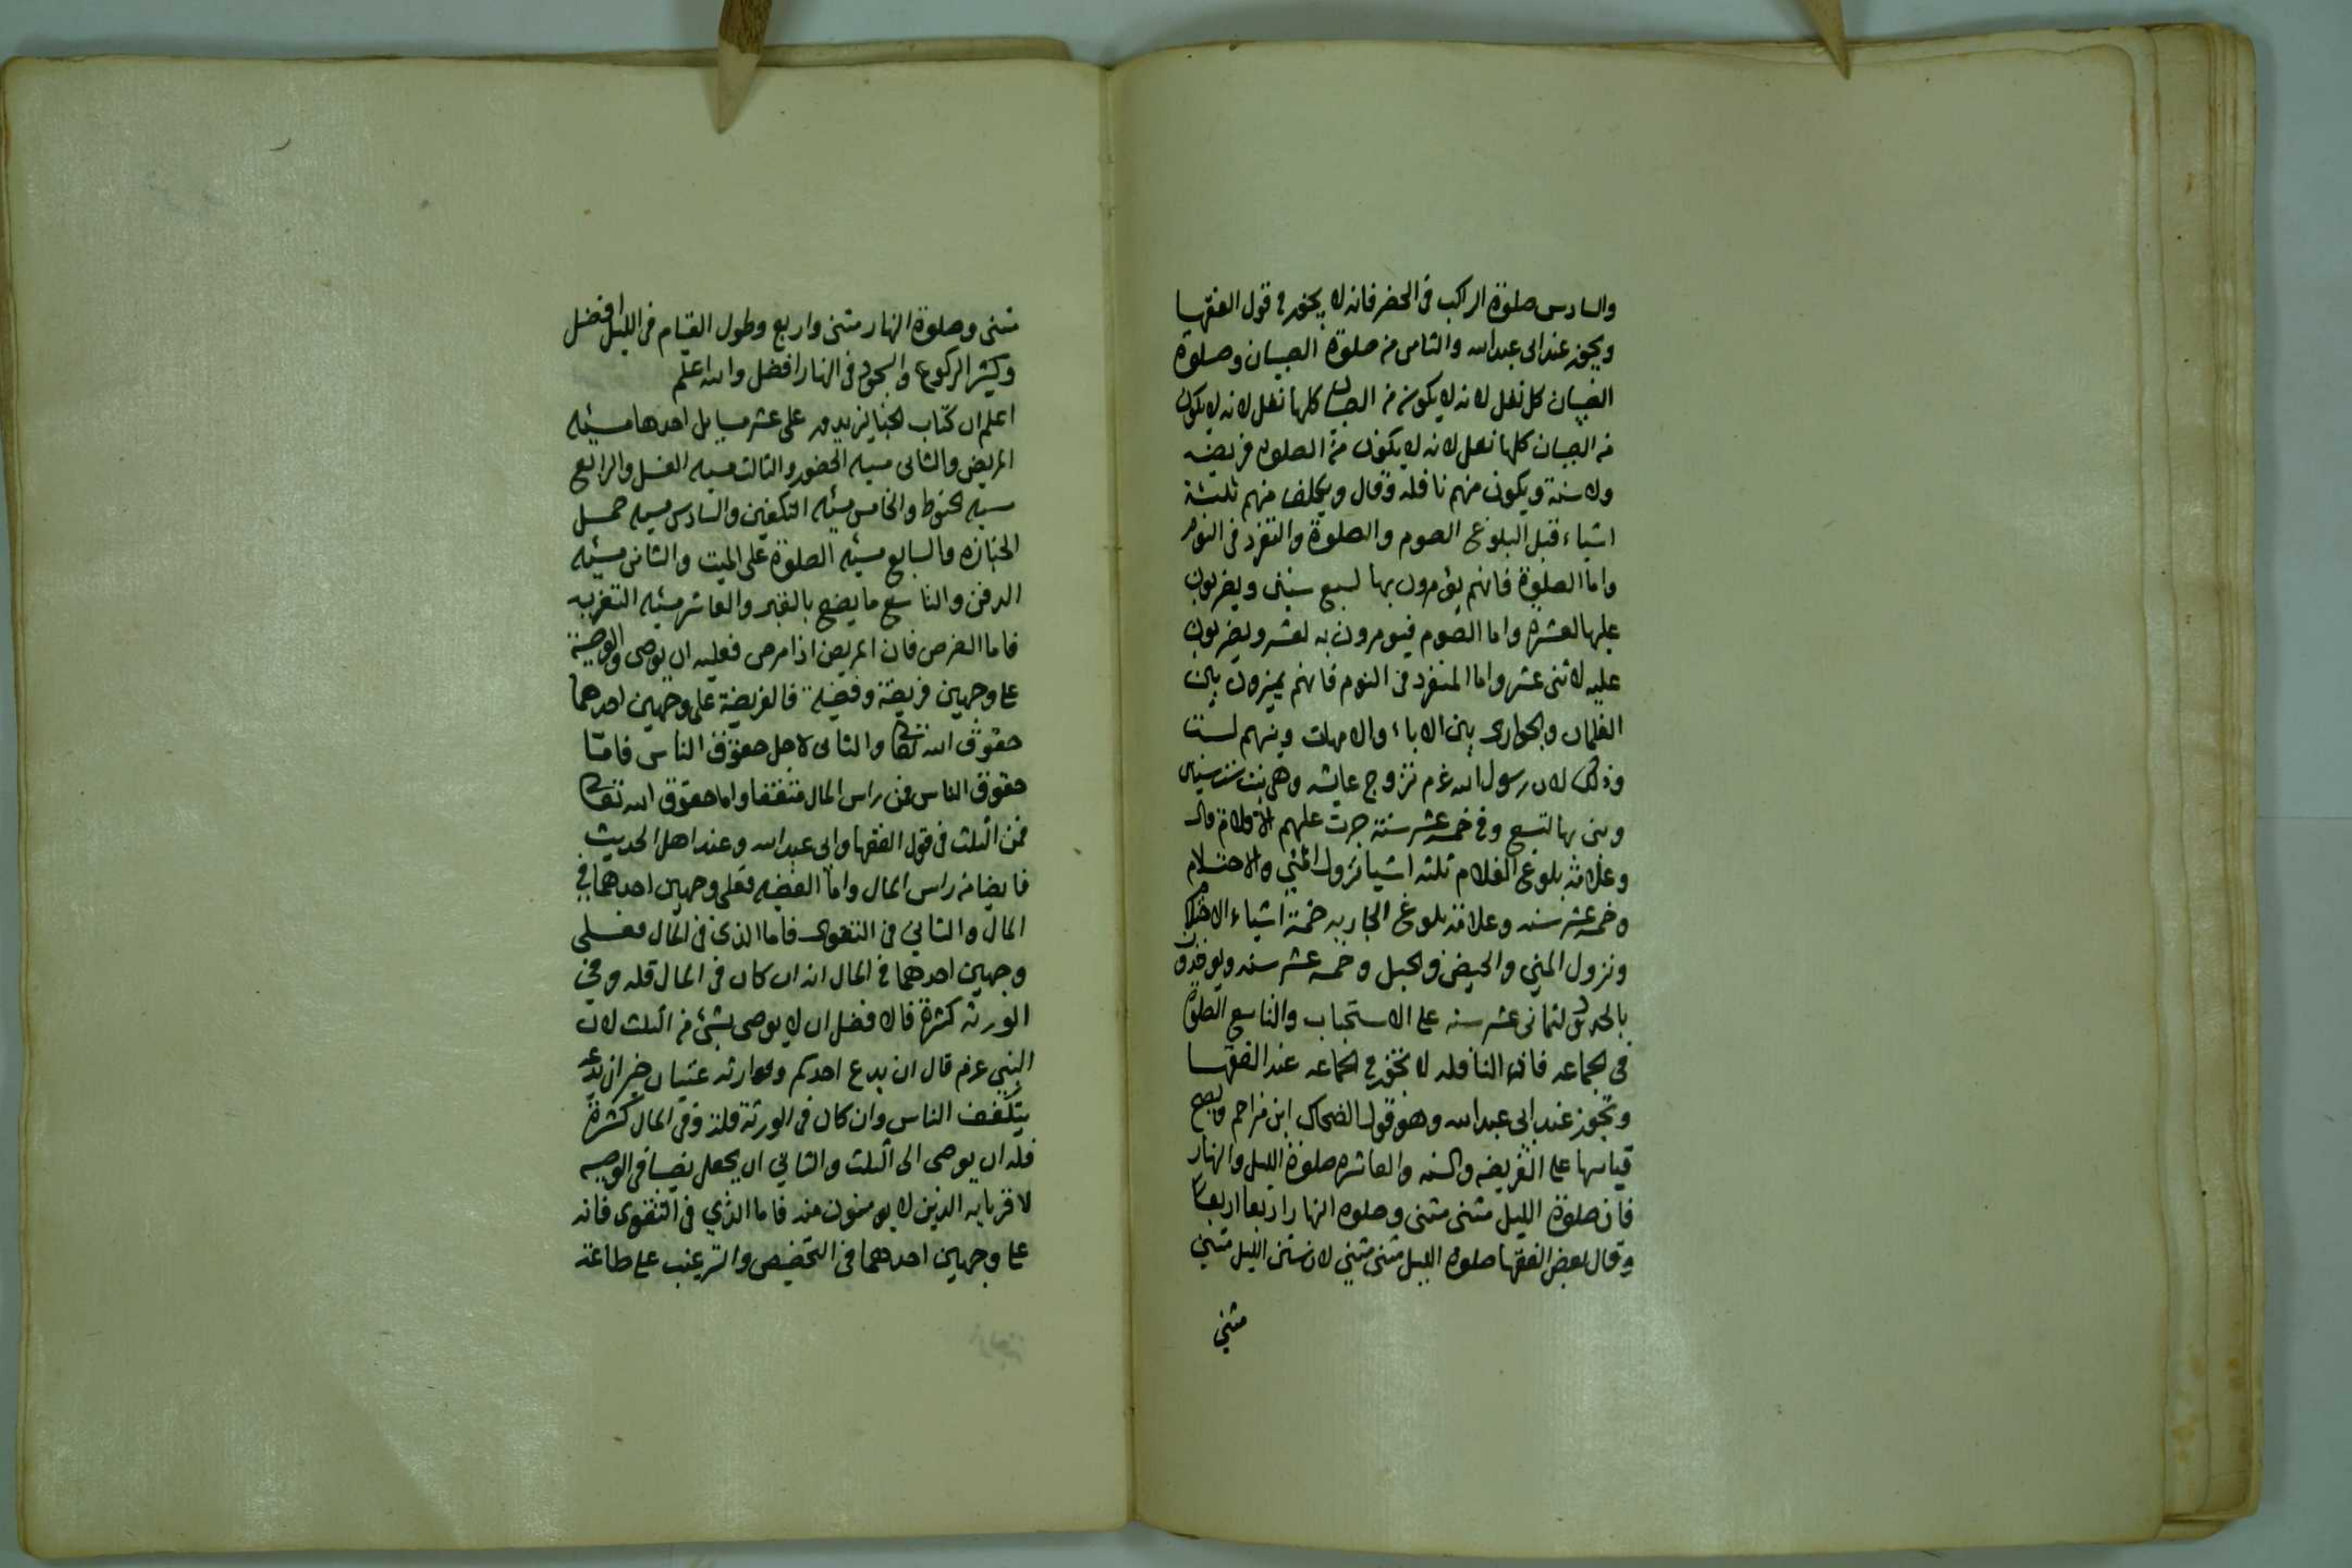 والسادس صلوة الراكب فى الحضر فانه لا يجوز فى قول الفقها
ويجوز عند ابى عبدالله والثامن من صلوة الصبيان وصلوة
الصبيان كل نفل لانه لا يكون من الصبيان كلها نفل لانه لا يكون
من الصبيان كلها نفل لانه لا يكون من الصلوة فريضه
ولا سنة ويكون منهم نافله وقال ويكلف منهم ثلثة
اشياء قبل البلوغ الصوم والصلوة والتفرد فى النوم
واما الصلوة فانهم يؤمرون بها لسبع سنين ويضربون
عليها لعشرة واما الصوم فيومرون به لعشر ويضربون
عليه لاثنى عشر واما المنفرد فى النوم فانهم يميزون بين
الغلمان والجوارى بين الاباء والامهات وبينهم لست
وذلك لان رسول الله عم تزوج عايشه وهى بنت ست سنين
وبنى بها لتسع وفى خمسة عشر سنة جرت عليهم الاقلام قال
وعلامة بلوغ الغلام ثلثه اشيا نزول المني والاحتلام
وخمسة عشر سنه وعلامة بلوغ الجاريه خمسة اشياء الاحتلام
ونزول المني والحيض والحبل وخمسه عشر سنه ويوخذون
بالحدود لثمانى عشر سنه على الاستحباب والتاسع الصلوة
فى الجماعه فان النافله لا تجوز فى الجماعه عند الفقها
وتجوز عند ابى عبدالله وهو قول الضحاك ابن مزاحم ويصح
قياسها على الفريضه والسنه والعاشره صلوة الليل والنهار
فان صلوة الليل مثنى مثنى وصلوه النهار اربعا اربعا
وقال بعض الفقها صلوة الليل مثنى مثنى لان سنن الليل مثنى
مثنى
مثنى وصلوة النهار مثنى واربع وطول القيام فى الليل افضل
وكثير الركوع والسجود فى النهار افضل والله اعلم
اعلم ان كتاب الجنايز يدور على عشر مسايل احدها مسئله
المريض والثانى مسئله الحضور والثالث مسئله الغسل والرابع
مسئله الحنوط والخامس مسئله التكفين والسادس مسئله حمل
الجنازه والسابع مسئله الصلوة على الميت والثامن مسئله
الدفن والتاسع ما يصنع بالقبر والعاشر مسئله التعزيه
فاما المرض فان المريض اذا مرض فعليه ان يوصى والوصية
على وجهين فريضة وفضيلة فالفريضة على وجهين احدهما
حقوق الله تعالى والثانى لاجل حقوق الناس فامّا
حقوق الناس من راس المال متفقا واما حقوق الله تعالى
فمن الثلث فى قول الفقها وابى عبدالله وعند اهل الحديث
فايضا من راس المال واما الفضيله فعلى وجهين احدهما فى
المال والثاني فى التقوى فاما الذى فى المال فعلى
وجهين احدهما فى المال انه ان كان فى المال قله وفى
الورثه كثرة فالافضل ان لا يوصى بشئ من الثلث لان
النبي عم قال ان يدع احدكم وارثه غنيا خير ان يدعه
يتكفف الناس وان كان فى الورثة قلة وفى المال كثرة
فله ان يوصى الى الثلث والثاني ان يجعل نصيبا فى الوصيه
لاقربايه الذين لا يرثون منه فاما الذي فى التقوى فانه
على وجهين احدهما فى التحضيض والترغيب على طاعة